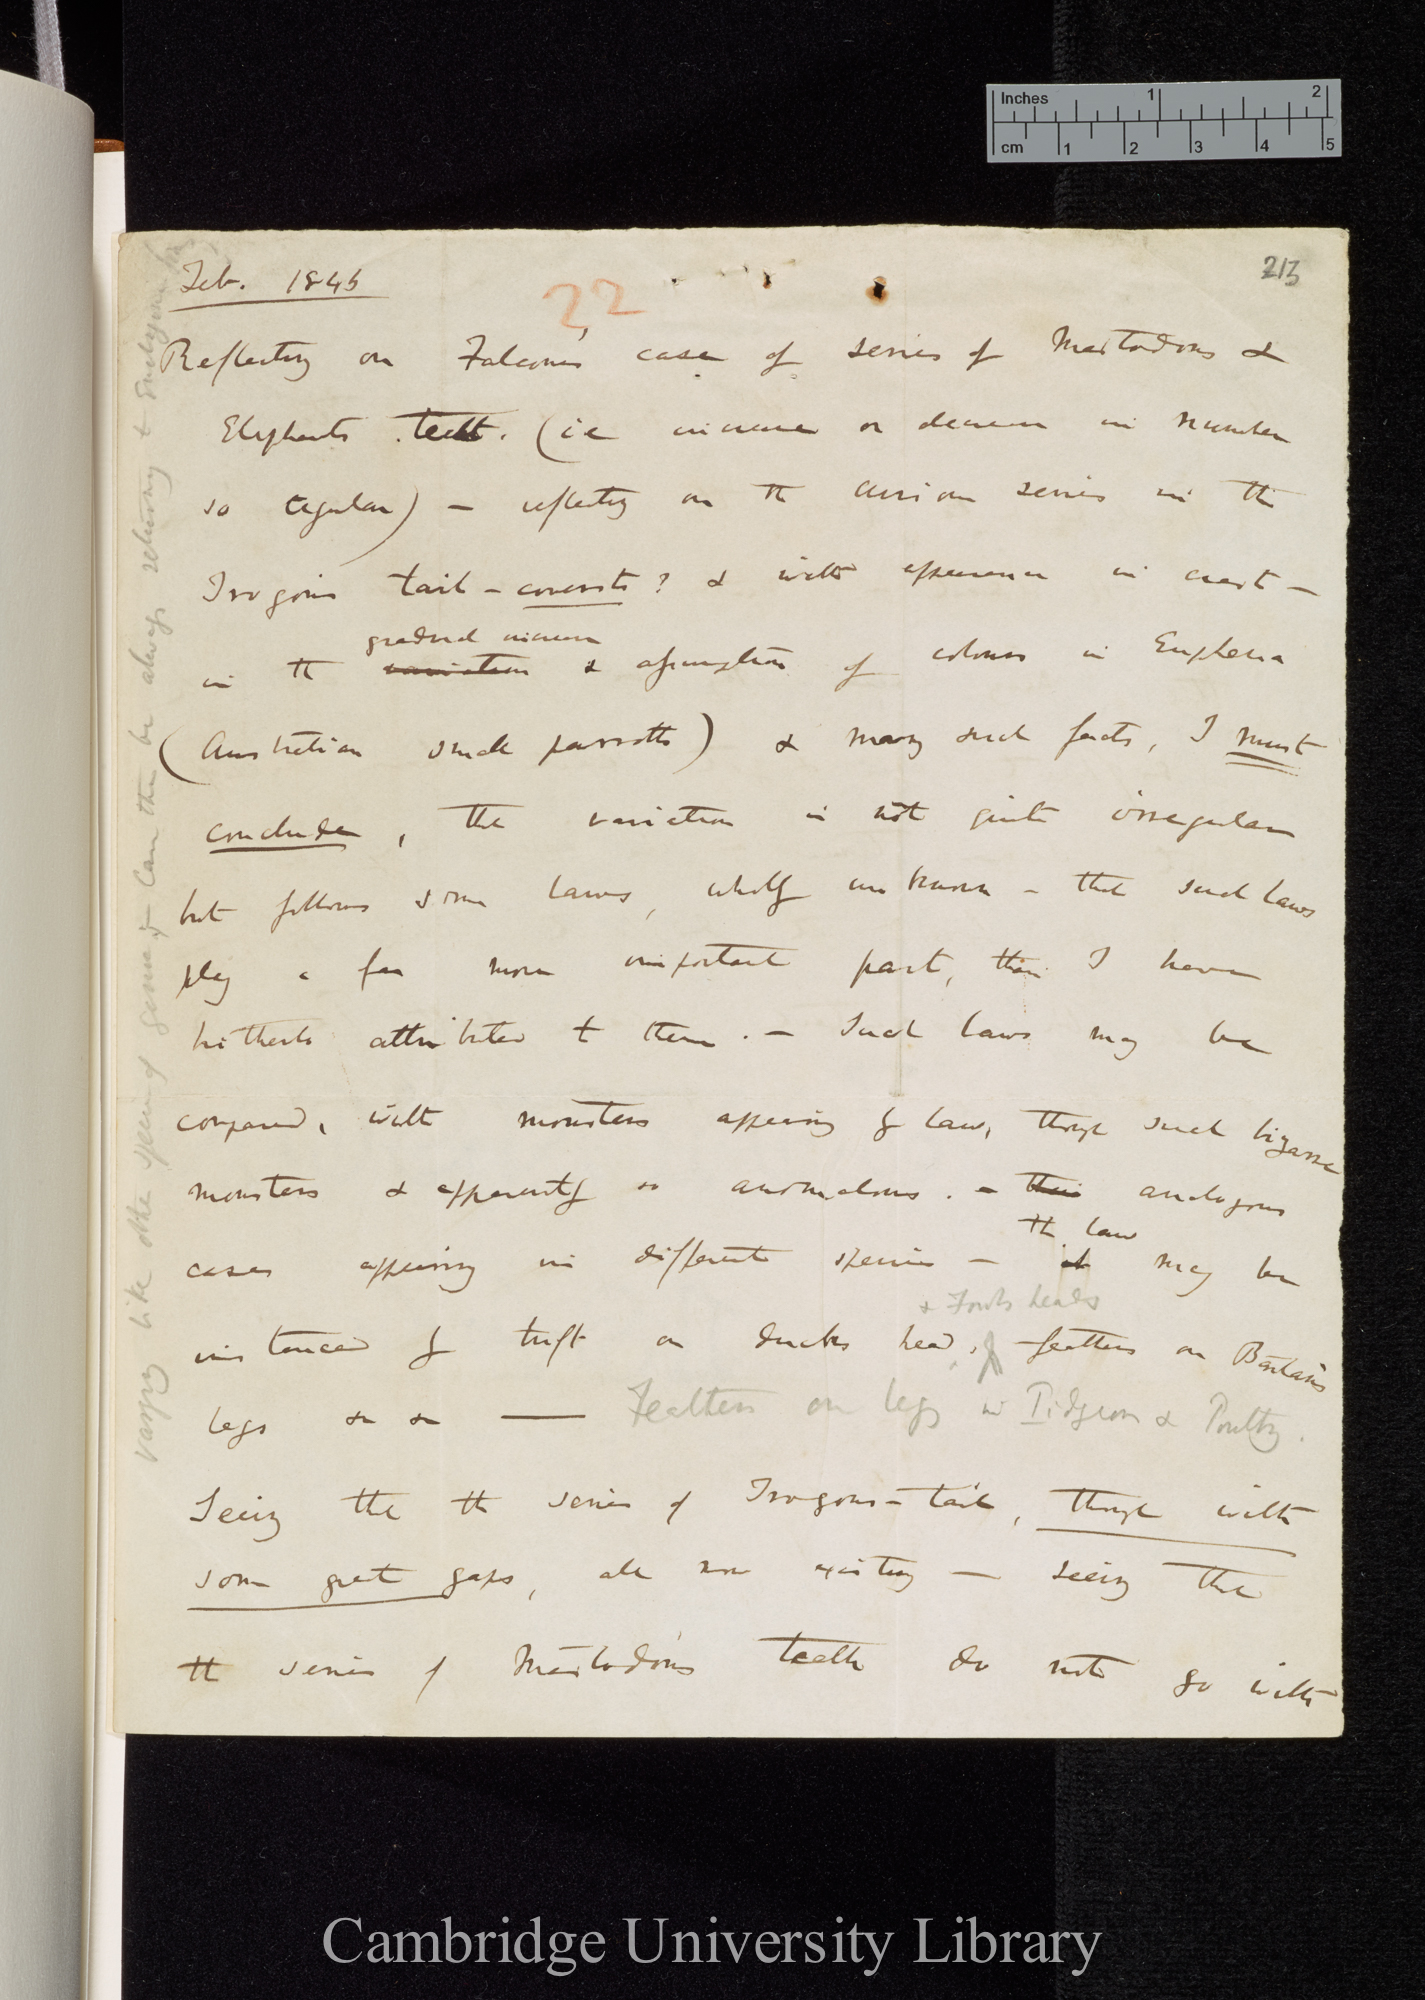 Inches 1 2
cm 1 2 3 4 5
213
Feb. 1845
22
Reflecting on Falconer's case of series of Mastodons &
Elephants teeth. (ie increase or decrease in number
so regular) — reflecting on the curious series in the
Trogons tail-coverts? & with appearance in crest —
gradual increase
in the variation & assumption of colours in Euphema
(Australian small parrotts) & many such facts, I must
conclude, the variation is not quite irregular
but follows some laws, wholly unknown — that such laws
play a far more important part, than I have
hitherto attributed to them. — Such laws may be
compared, with monsters appearing by law, though such bizarre
monsters & apparently so anomalous. — this analogous
the law
cases appearing in different species — it may be
& Fowls heads
instanced by tuft on ducks head, feathers on Bantams
legs &c &c — Feathers on legs in Pidgeons & Poultry.
Seeing that the series of Trogons-tail, though with
some great gaps, all now existing — seeing that
the series of Mastodons teeth do not go with
varying like other species of genus, Can there be always returning to
Cambridge University Library